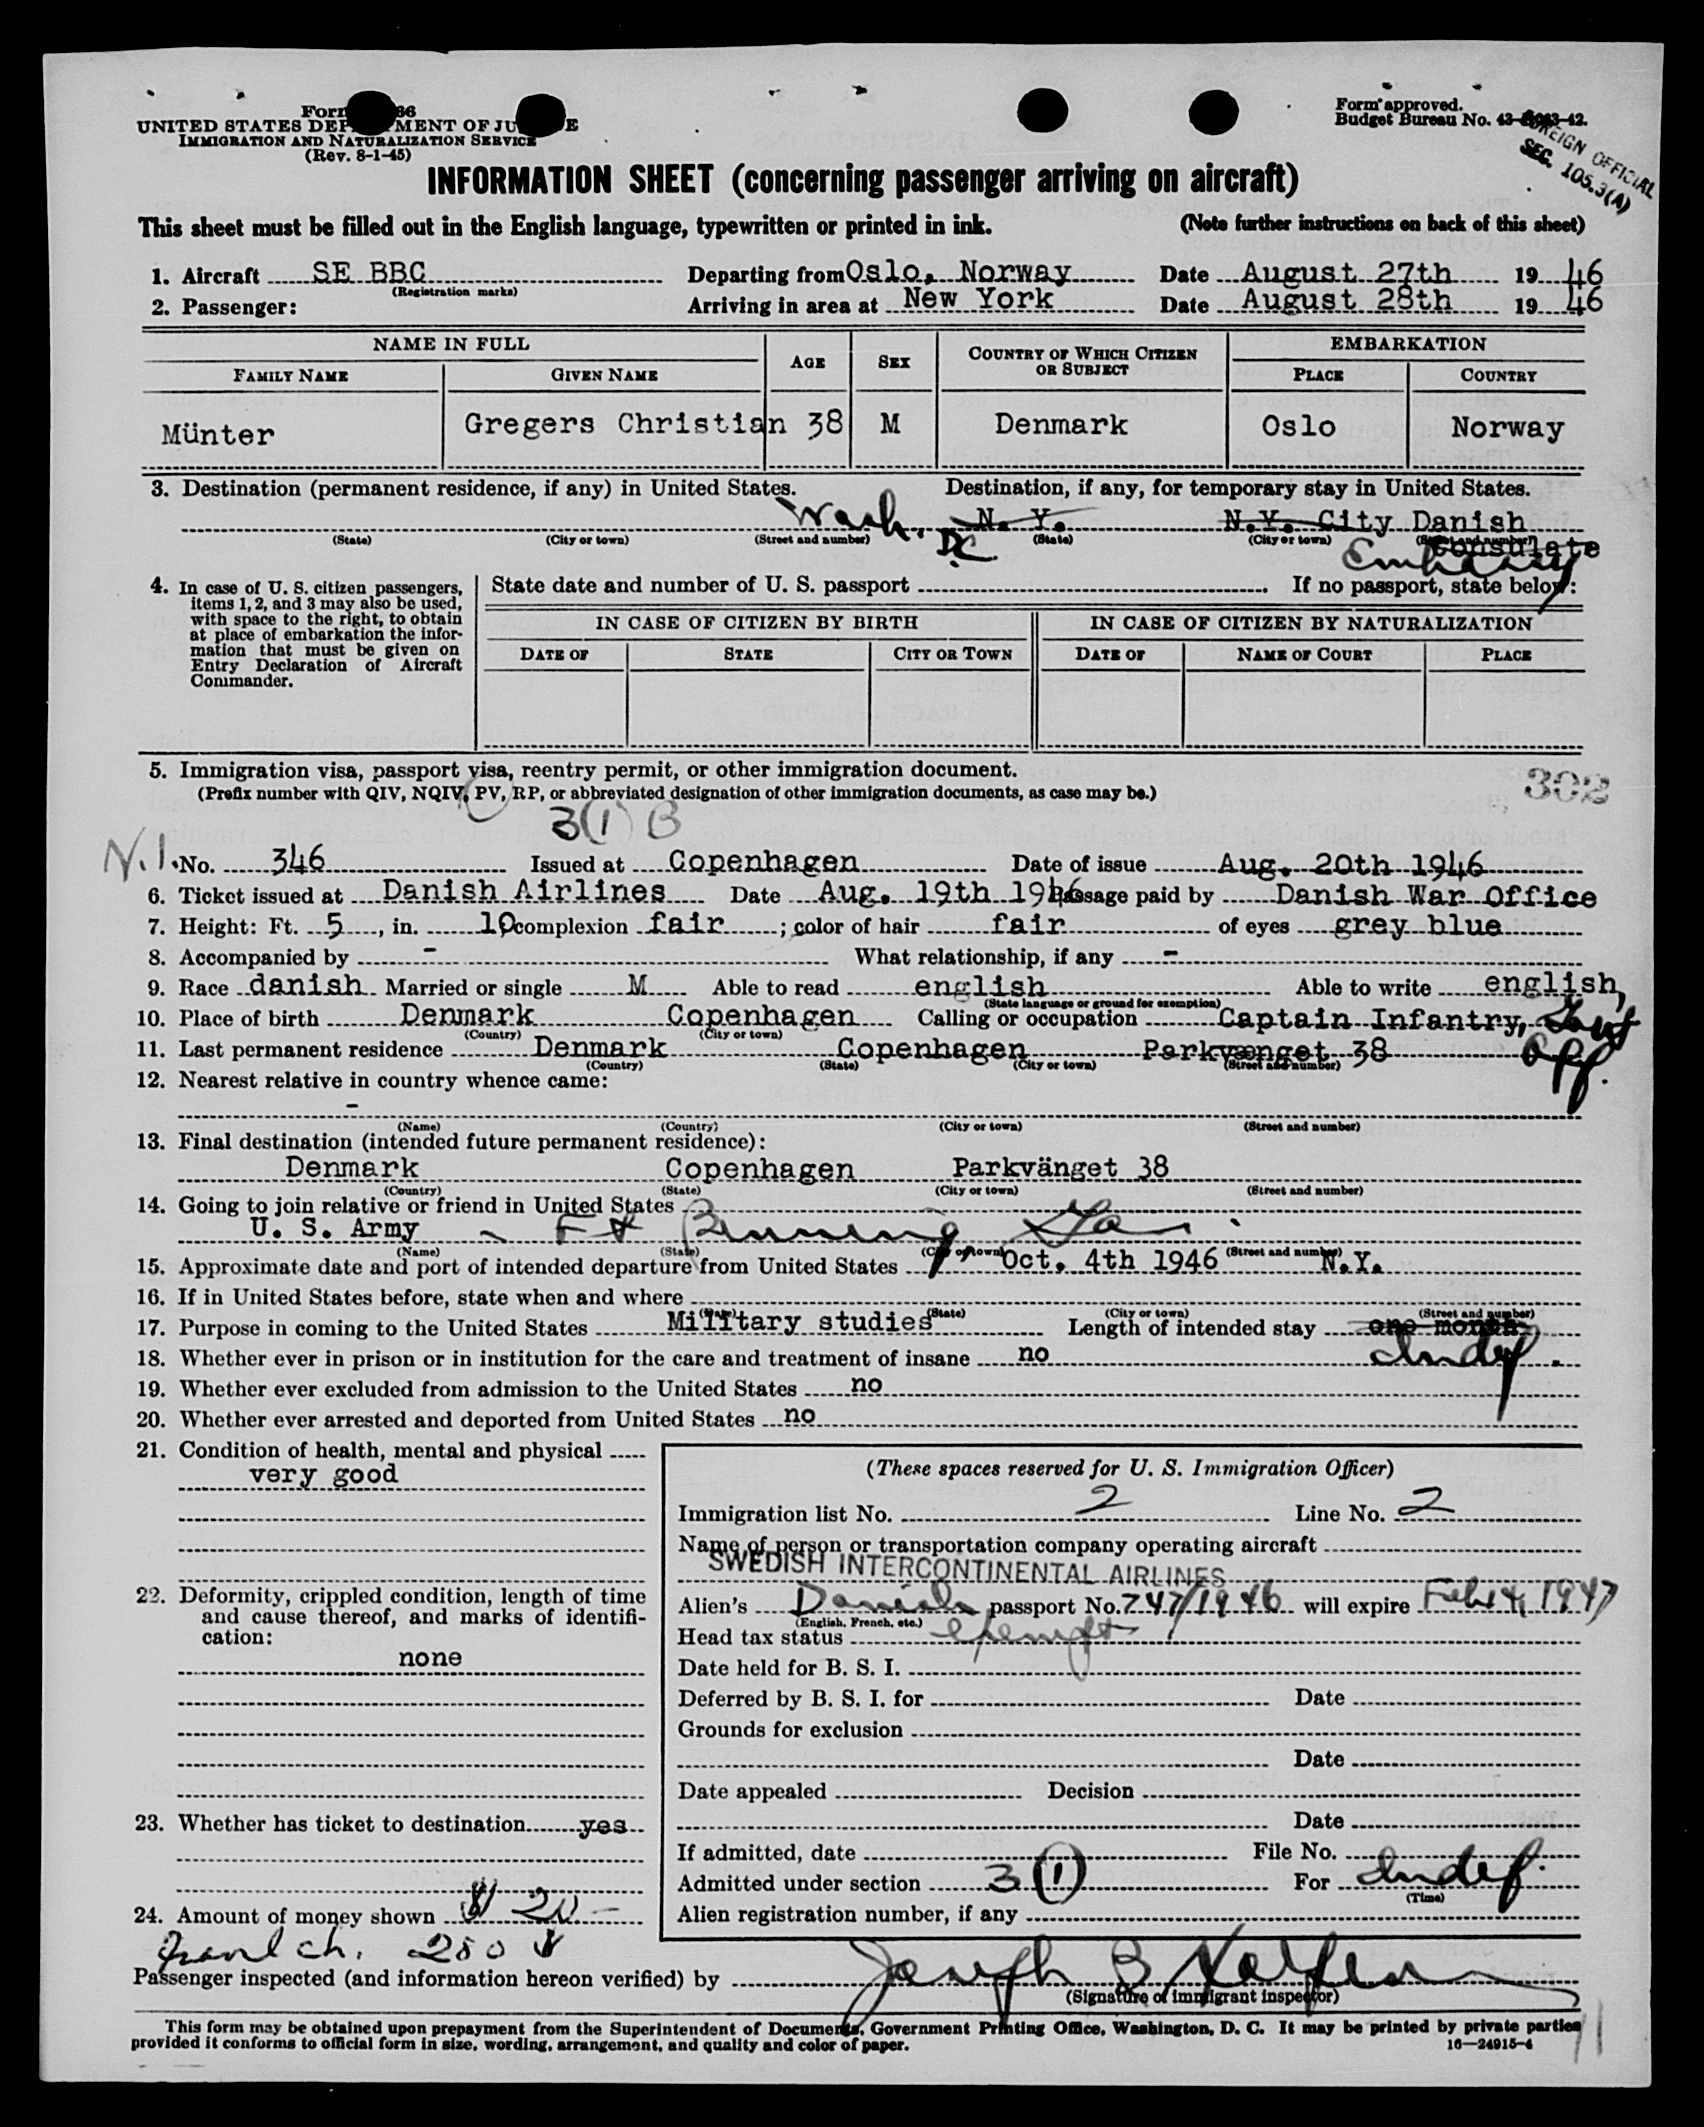 Form approved.
UNITED STATES DEP MENT OF JU E
Budget Bureau No. 43-
IMMIGRATION AND NATURALIZATION SERVICE
(Rev. 8-1-45)
FOREIGN OFFICIAL
SEC. 105.3(A)
INFORMATION SHEET (concerning passenger arriving on aircraft)
This sheet must be filled out in the English language, typewritten or printed in ink. (Note further instructions on back of this sheet)
1. Aircraft SE BBC Departing from Oslo, Norway Date August 27th 19 46
(Registration marks)
2. Passenger: Arriving in area at New York Date August 28th 19 46
NAME IN FULL AGE SEX COUNTRY OF WHICH CITIZEN OR SUBJECT EMBARKATION
FAMILY NAME GIVEN NAME PLACE COUNTRY
Münter Gregers Christian 38 M Denmark Oslo Norway
3. Destination (permanent residence, if any) in United States. Destination, if any, for temporary stay in United States.
Wash. D.C. N. Y. N.Y. City Danish
(State) (City or town) (Street and number) (State) (City or town) (Street and number)
Consulate
Embassy
4. In case of U. S. citizen passengers, items 1, 2, and 3 may also be used, with space to the right, to obtain at place of embarkation the information that must be given on Entry Declaration of Aircraft Commander.
State date and number of U. S. passport If no passport, state below:
IN CASE OF CITIZEN BY BIRTH IN CASE OF CITIZEN BY NATURALIZATION
DATE OF STATE CITY OR TOWN DATE OF NAME OF COURT PLACE
5. Immigration visa, passport visa, reentry permit, or other immigration document.
(Prefix number with QIV, NQIV, PV, RP, or abbreviated designation of other immigration documents, as case may be.)
302
3(1) B
N.I. No. 346 Issued at Copenhagen Date of issue Aug. 20th 1946
6. Ticket issued at Danish Airlines Date Aug. 19th 1946 Passage paid by Danish War Office
7. Height: Ft. 5, in. 10 complexion fair; color of hair fair of eyes grey blue
8. Accompanied by - What relationship, if any -
9. Race danish Married or single M Able to read english Able to write english,
(State language or ground for exemption)
10. Place of birth Denmark Copenhagen Calling or occupation Captain Infantry, Govt Off.
(Country) (City or town)
11. Last permanent residence Denmark Copenhagen Parkvænget 38
(Country) (State) (City or town) (Street and number)
12. Nearest relative in country whence came:
-
(Name) (Country) (City or town) (Street and number)
13. Final destination (intended future permanent residence):
Denmark Copenhagen Parkvänget 38
(Country) (State) (City or town) (Street and number)
14. Going to join relative or friend in United States
U. S. Army - Ft Benning, Ga.
(Name) (State) (City or town) (Street and number)
15. Approximate date and port of intended departure from United States Oct. 4th 1946 N.Y.
16. If in United States before, state when and where
(Date) (State) (City or town) (Street and number)
17. Purpose in coming to the United States Military studies Length of intended stay one month
Indef.
18. Whether ever in prison or in institution for the care and treatment of insane no
19. Whether ever excluded from admission to the United States no
20. Whether ever arrested and deported from United States no
21. Condition of health, mental and physical
very good
22. Deformity, crippled condition, length of time and cause thereof, and marks of identification:
none
23. Whether has ticket to destination yes
24. Amount of money shown $ 20 -
ch. 250 $
(These spaces reserved for U. S. Immigration Officer)
Immigration list No. 2 Line No. 2
Name of person or transportation company operating aircraft
SWEDISH INTERCONTINENTAL AIRLINES
Alien's Danish passport No. 747/1946 will expire Feb 14, 1947
(English, French, etc.)
Head tax status exempt
Date held for B. S. I.
Deferred by B. S. I. for Date
Grounds for exclusion
Date
Date appealed Decision
Date
If admitted, date File No.
Admitted under section 3 (1) For Indef.
(Time)
Alien registration number, if any
Passenger inspected (and information hereon verified) by Joseph B
(Signature of immigrant inspector)
This form may be obtained upon prepayment from the Superintendent of Documents, Government Printing Office, Washington, D. C. It may be printed by private parties
provided it conforms to official form in size, wording, arrangement, and quality and color of paper. 16—24915-4